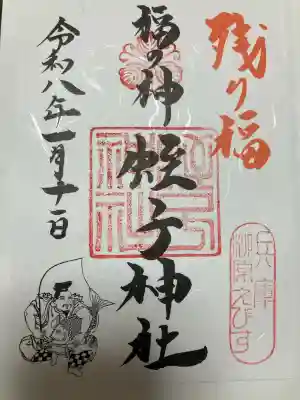 残り福
兵庫
柳原えびす
福の神
蛭子神社
令和八年一月十一日